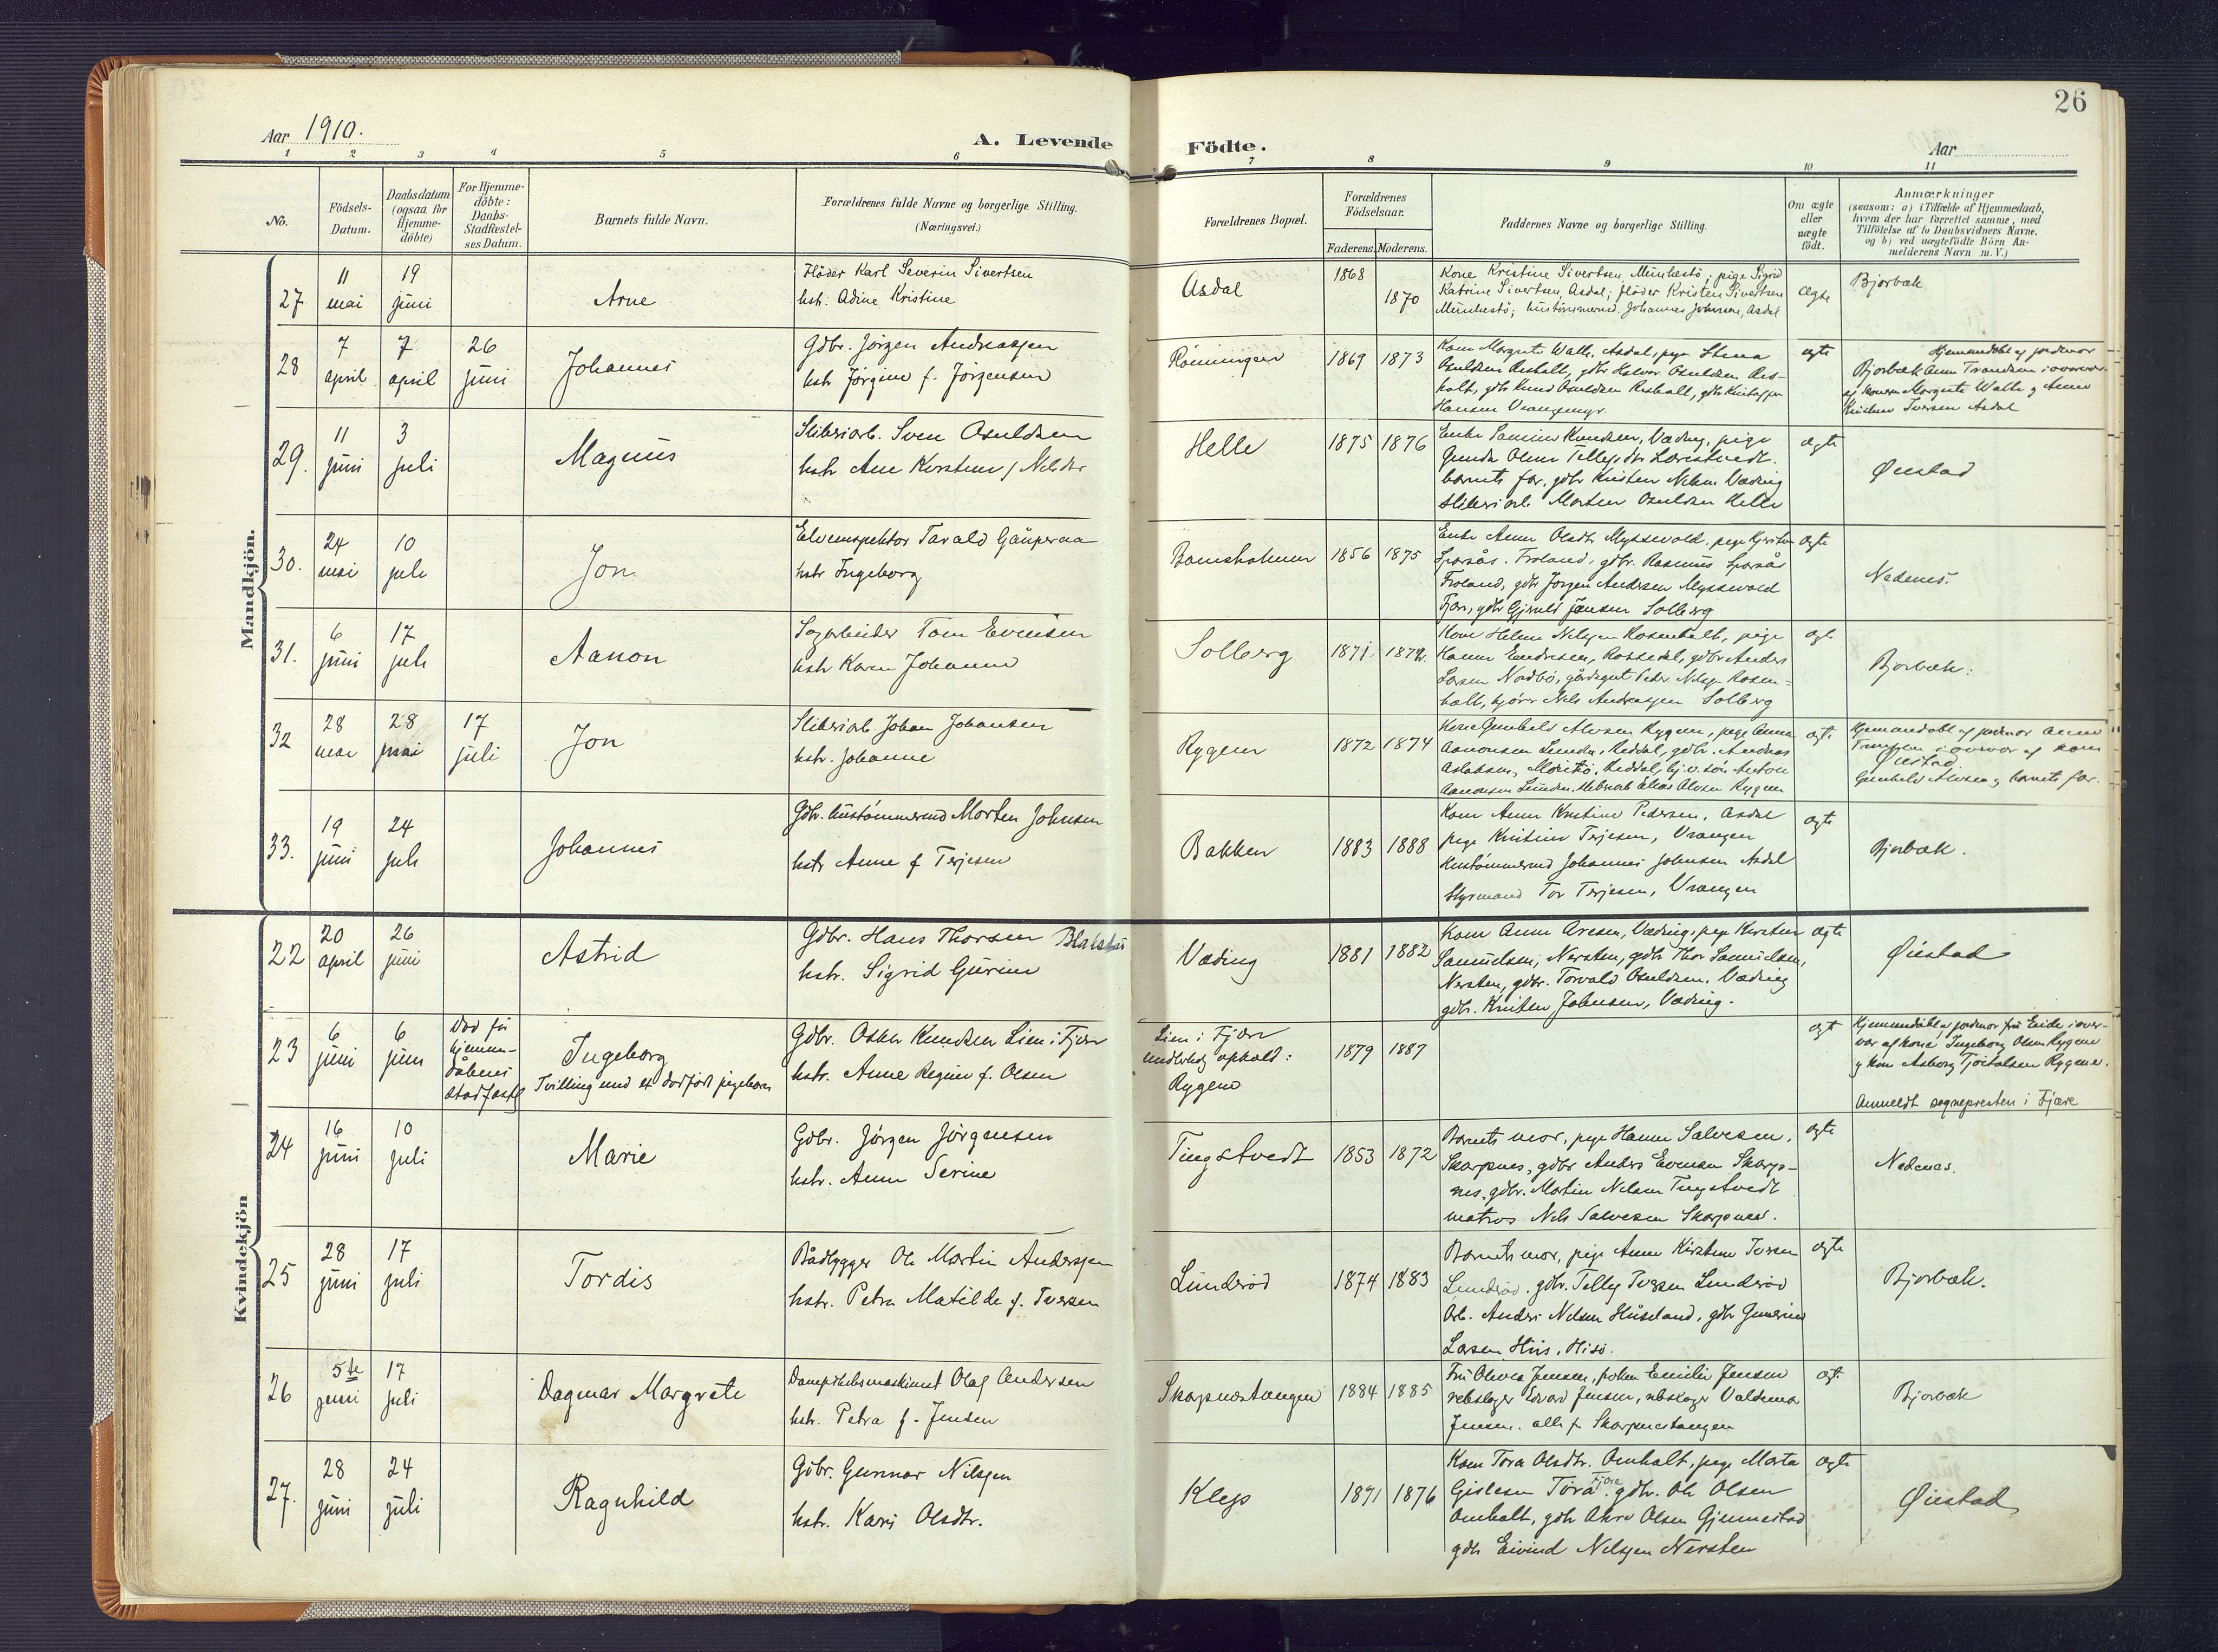 26
Aar 1910.
A. Levende Födte.
Aar
1 2 3 4 5 6 7 8 9 10 11
No.
Födsels-Datum.
Daabsdatum (ogsaa for Hjemme-döbte)
For Hjemme-döbte: Daabs-Stadfæstel-ses Datum.
Barnets fulde Navn.
Forældrenes fulde Navne og borgerlige Stilling.
(Næringsvei.)
Forældrenes Bopæl.
Forældrenes Födselsaar.
Faderens. Moderens.
Faddernes Navne og borgerlige Stilling.
Om ægte eller uægte födt.
Anmærkninger
(saasom: a) i Tilfælde af Hjemmedaab,
hvem der har forrettet samme, med
Tilföielse af to Daabsvidners Navne.
og b) ved uægtefödte Börn An-
melderens Navn m. V.)
Mandkjön.
27 11 mai 19 juni Arne
Flöder Karl Severin Sivertsen
hstr. Adine Kristine
Asdal 1868 1870
Kone Kristine Sivertsen, pige Sigrid
Katrine Sivertsen, Asdal; flöder Kristen Sivertsen
Johannes Johnsen, Asdal
ægte
Bjorbæk
28 7 april 7 april 26 juni Johannes
Gdbr. Jörgen Andreassen
hstr Jörgine f. Jörgensen
Röiningen 1869 1873
Kone Margrete Walle, Asdal, pige Stena
Osuldsen, gdbr Halvor Osuldsen
gdbr Knud Osuldsen
Hansen Vrangemyr.
ægte
Hjemmedöbt af jordmor
Bjorbæk
af konerne Margrete Walle og Anne
Iversen Asdal
29. 11 juni 3 juli Magnus
Sliberiarb. Sven Osuldsen
hstr Ane Kirstine f Nilsdtr
Helle 1875 1876
Enke Knudsen, Væding, pige
Gunda Olsen
barnets far, gdbr Kristen Nilsen Væding
sliberiarb. Morten Osuldsen Helle
ægte
Øiestad
30. 24 mai 10 juli Jon
Elveinspektor Tarald Gauperaa
hstr Ingeborg
Bomsholmen 1856 1875
Enke Anne Olsdtr Myssevold, pige
Froland, gdbr. Rasmus
Froland, gdbr Jörgen Andersen Myssevold
Fjære, gdbr Jensen Solberg
ægte
Nedenes.
31. 6 juni 17 juli Aanon
Sagarbeider Tom Evensen
hstr Karen Johanne
Solberg 1871 1872
Kone Helene Nilsen Rosenholt, pige
Hanne Endresen, gdbr Anders
Larsen Nordbö, gårdsgut Peder Nilsen Rosen-
holt, Nils Andreassen Solberg
ægte
Bjorbæk.
32 28 mai 28 mai 17 juli Jon
Sliberiarb Johan Johansen
hstr. Johanne
Rygene 1872 1874
Kone Gunhild Rygene, pige Anna
Aanonsen Reddal, gdbr. Andreas
Aslaksen, Reddal, Anton
Aanonsen Rygene
ægte
Hjemmedöbt af jordmor Anne
i overvær af kone
Øiestad
Gunhild og barnets far.
33. 19 juni 24 juli Johannes
Gdbr. hustömmermd Morten Johnsen
hstr Anne f Terjesen
Bakken 1883 1888
Kone Anne Kristine Pedersen, Asdal
pige Kristine Terjesen, Vrangen
Hustömmermd Johannes Johnsen Asdal
Styrmand Tor Terjesen, Vrangen
ægte
Bjorbæk.
Kvindekjön
22 20 april 26 juni Astrid
Gdbr. Hans Thorsen
hstr. Sigrid Gurine
Væding 1881 1882
Kone Anne Aresen, Væding, pige Kirsten
Samuelsen, Nersten, gdbr Thor Samuelsen,
Nersten, gdbr. Torvald Osuldsen, Væding
gdbr. Kristen Johnsen, Væding.
ægte
Øiestad
23 6 juni 6 juni
Död før hjemme-dåbens stadfæst.
Ingeborg
Tvilling med et dødfødt pigebarn
Gdbr. Oskar Knudsen Lien i Fjære
hstr. Anne Regine f. Olsen
Lien i Fjære
midlertidig ophold:
Rygene
1879 1887
ægte
Hjemmedöbt af jordmor fru Eide i over-
vær af kone Ingeborg Olsen Rygene
og kone Aasborg Rygene.
Anmeldt sognepresten i Fjære
24 16 juni 10 juli Marie
Gdbr. Jörgen Jörgensen
hstr. Anne Serine
Tingstvedt 1853 1872
Barnets mor, pige Hanne Salvesen,
Skarpnes, gdbr Anders Evensen Skarp-
nes, gdbr. Martin Nilsen Tingstvedt
matros Nils Salvesen Skarpnes.
ægte
Nedenes.
25 28 juni 17 juli Tordis
Bådbygger Ole Martin Andersen
hstr. Petra Matilde f. Iversen
Lunderöd 1874 1883
Barnets mor, pige Anne Kirstine Iversen
Lunderöd, gdbr. Tellef Iversen Lunderöd
Arb. Anders Nilsen Huseland, gdbr
Larsen His, Hisö.
ægte
Bjorbæk.
26 5te juni 17 juli Dagmar Margrete
Dampskibsmaskinist Olaf Andersen
hstr. Petra f. Jensen
Skarpnestangen 1884 1885
Fru Olivia Jensen, frøken Emilie Jensen
rebslager Edvard Jensen, rebslager Valdemar
Jensen. alle fr Skarpnestangen
ægt
Bjorbæk
27. 28 juni 24 juli Ragnhild
Gdbr. Gunnar Nilsen
hstr. Kari Olsdtr.
Klep 1871 1876
Kone Tora Olsdtr. Omholt, pige Marta
Gislesen Fjære gdbr. Ole Olsen
Omholt, gdbr Olsen Gjennestad
gdbr Eivind Nilsen Nersten
ægte
Øiestad